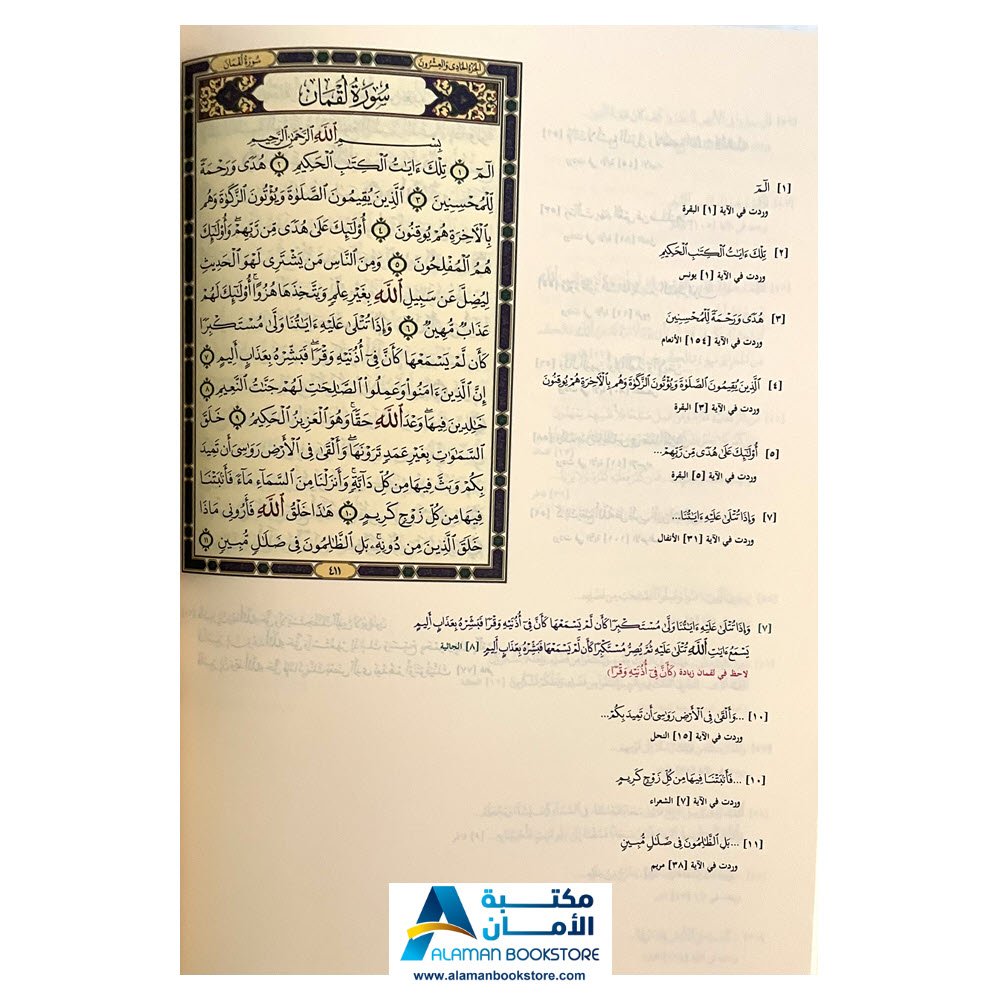 الجزء الحادي والعشرون
سورة لقمان
سُورَةُ لُقْمَان
بِسْمِ اللَّهِ الرَّحْمَٰنِ الرَّحِيمِ
الٓمٓ ١ تِلْكَ ءَايَٰتُ الْكِتَٰبِ الْحَكِيمِ ٢ هُدًى وَرَحْمَةً
لِّلْمُحْسِنِينَ ٣ الَّذِينَ يُقِيمُونَ الصَّلَوٰةَ وَيُؤْتُونَ الزَّكَوٰةَ وَهُم
بِالْءَاخِرَةِ هُمْ يُوقِنُونَ ٤ أُوْلَٰٓئِكَ عَلَىٰ هُدًى مِّن رَّبِّهِمْ وَأُوْلَٰٓئِكَ
هُمُ الْمُفْلِحُونَ ٥ وَمِنَ النَّاسِ مَن يَشْتَرِى لَهْوَ الْحَدِيثِ
لِيُضِلَّ عَن سَبِيلِ اللَّهِ بِغَيْرِ عِلْمٍ وَيَتَّخِذَهَا هُزُوًا أُوْلَٰٓئِكَ لَهُمْ
عَذَابٌ مُّهِينٌ ٦ وَإِذَا تُتْلَىٰ عَلَيْهِ ءَايَٰتُنَا وَلَّىٰ مُسْتَكْبِرًا
كَأَن لَّمْ يَسْمَعْهَا كَأَنَّ فِىٓ أُذُنَيْهِ وَقْرًا فَبَشِّرْهُ بِعَذَابٍ أَلِيمٍ ٧
إِنَّ الَّذِينَ ءَامَنُوا وَعَمِلُوا الصَّٰلِحَٰتِ لَهُمْ جَنَّٰتُ النَّعِيمِ ٨
خَٰلِدِينَ فِيهَا وَعْدَ اللَّهِ حَقًّا وَهُوَ الْعَزِيزُ الْحَكِيمُ ٩ خَلَقَ
السَّمَٰوَٰتِ بِغَيْرِ عَمَدٍ تَرَوْنَهَا وَأَلْقَىٰ فِى الْأَرْضِ رَوَٰسِىَ أَن تَمِيدَ
بِكُمْ وَبَثَّ فِيهَا مِن كُلِّ دَآبَّةٍ وَأَنزَلْنَا مِنَ السَّمَآءِ مَآءً فَأَنۢبَتْنَا
فِيهَا مِن كُلِّ زَوْجٍ كَرِيمٍ ١٠ هَٰذَا خَلْقُ اللَّهِ فَأَرُونِى مَاذَا
خَلَقَ الَّذِينَ مِن دُونِهِۦ بَلِ الظَّٰلِمُونَ فِى ضَلَٰلٍ مُّبِينٍ ١١
٤١١
[١] الٓمٓ
وردت في الآية [١] البقرة
[٢] تِلْكَ ءَايَٰتُ الْكِتَٰبِ الْحَكِيمِ
وردت في الآية [١] يونس
[٣] هُدًى وَرَحْمَةً لِّلْمُحْسِنِينَ
وردت في الآية [١٥٤] الأنعام
[٤] الَّذِينَ يُقِيمُونَ الصَّلَوٰةَ وَيُؤْتُونَ الزَّكَوٰةَ وَهُم بِالْءَاخِرَةِ هُمْ يُوقِنُونَ
وردت في الآية [٣] البقرة
[٥] أُوْلَٰٓئِكَ عَلَىٰ هُدًى مِّن رَّبِّهِمْ...
وردت في الآية [٥] البقرة
[٧] وَإِذَا تُتْلَىٰ عَلَيْهِ ءَايَٰتُنَا...
وردت في الآية [٣١] الأنفال
[٧] وَإِذَا تُتْلَىٰ عَلَيْهِ ءَايَٰتُنَا وَلَّىٰ مُسْتَكْبِرًا كَأَن لَّمْ يَسْمَعْهَا كَأَنَّ فِىٓ أُذُنَيْهِ وَقْرًا فَبَشِّرْهُ بِعَذَابٍ أَلِيمٍ
يَسْمَعُ ءَايَٰتِ اللَّهِ تُتْلَىٰ عَلَيْهِ ثُمَّ يُصِرُّ مُسْتَكْبِرًا كَأَن لَّمْ يَسْمَعْهَا فَبَشِّرْهُ بِعَذَابٍ أَلِيمٍ [٨] الجاثية
لاحظ في لقمان زيادة (كَأَنَّ فِىٓ أُذُنَيْهِ وَقْرًا)
[١٠] ...وَأَلْقَىٰ فِى الْأَرْضِ رَوَٰسِىَ أَن تَمِيدَ بِكُمْ...
وردت في الآية [١٥] النحل
[١٠] ...فَأَنۢبَتْنَا فِيهَا مِن كُلِّ زَوْجٍ كَرِيمٍ
وردت في الآية [٧] الشعراء
[١١] ...بَلِ الظَّٰلِمُونَ فِى ضَلَٰلٍ مُّبِينٍ
وردت في الآية [٣٨] مريم
مكتبة
الأمان
ALAMAN BOOKSTORE
www.alamanbookstore.com